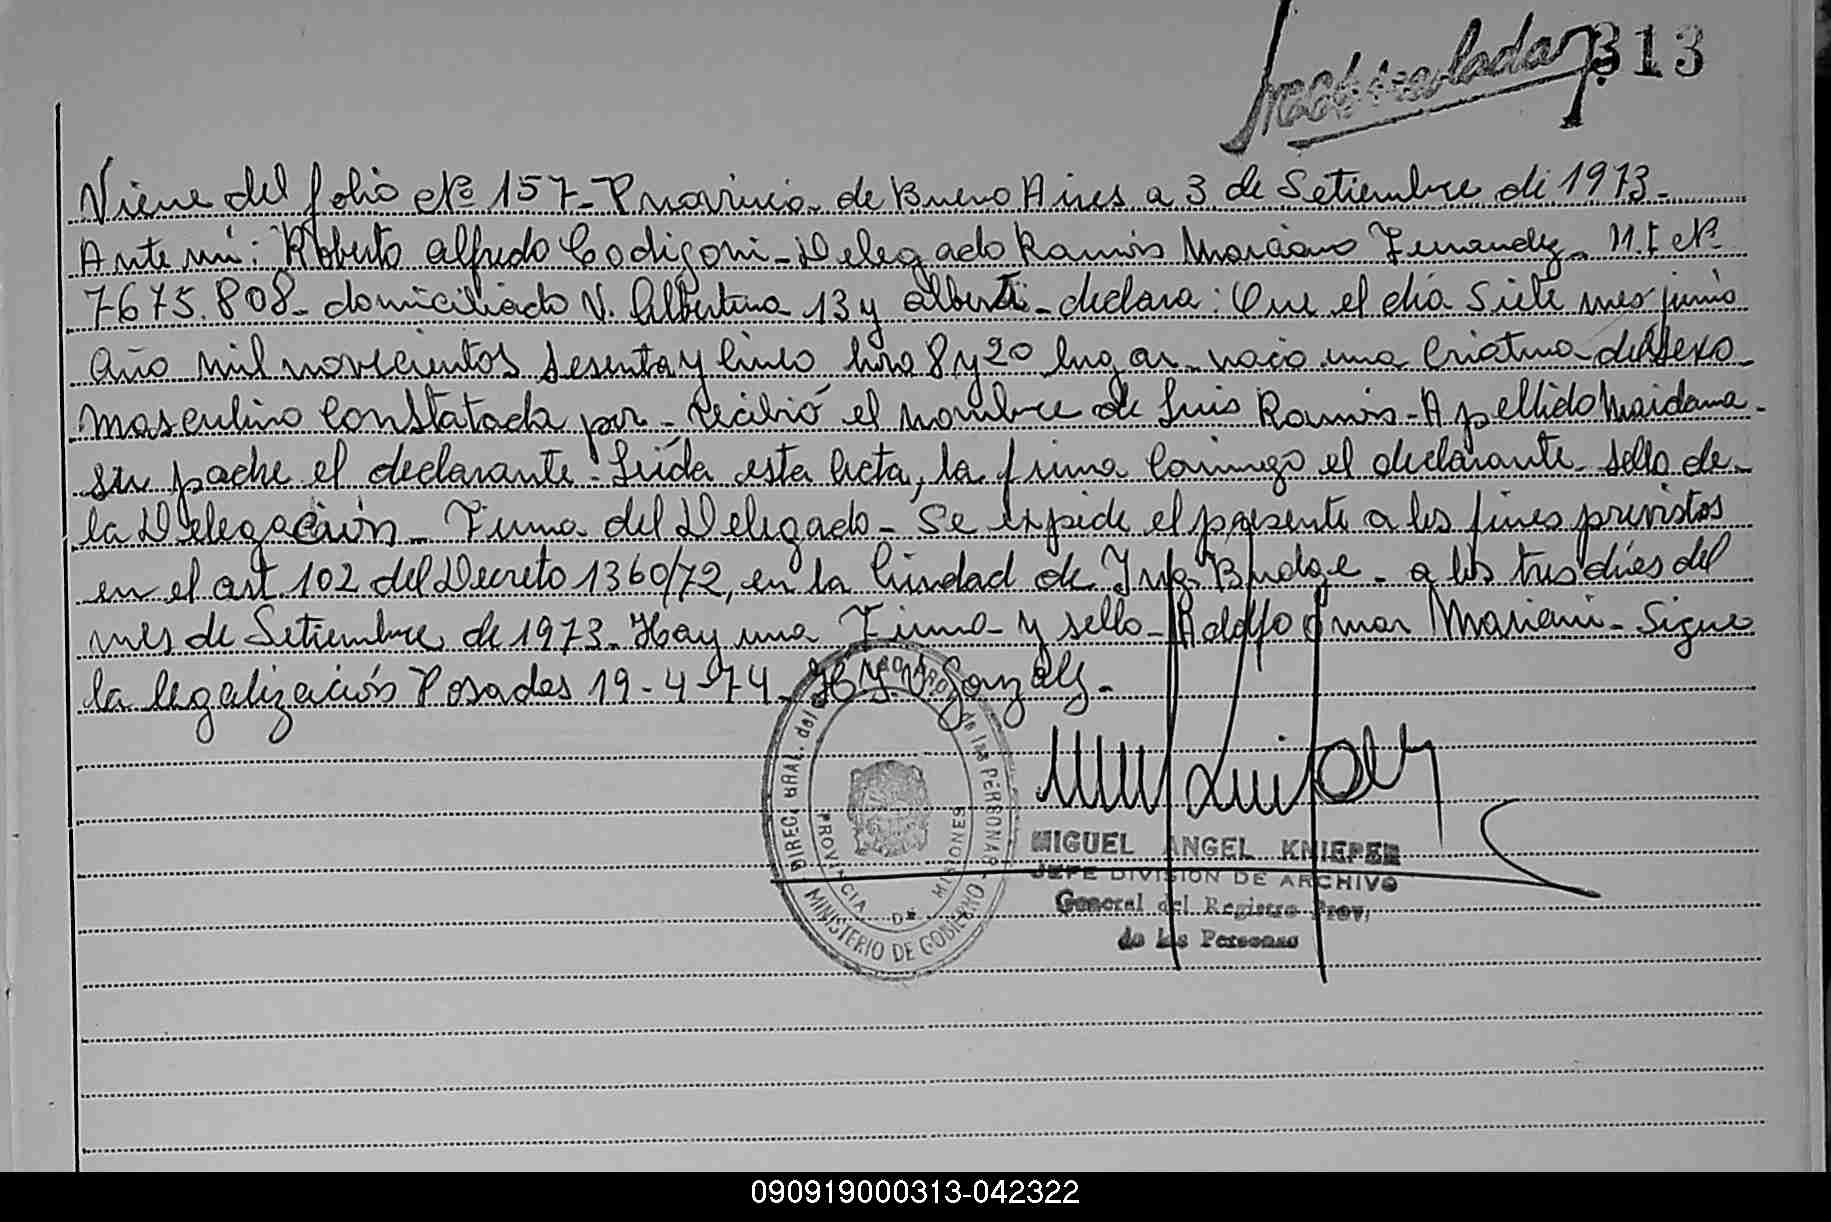 Inmatriculada 313
Viene del folio Nº 157- Provincia de Bueno Aires a 3 de Setiembre de 1973-
Ante mí: Roberto Alfredo Codigoni- Delegado Ramón Marciano Fernandez- M.I Nº
7675.808- domiciliado V. Albertina 13 y Alberti- declara: Que el día Siete mes junio
Año mil novecientos Sesenta y Cinco hora 8 y 20 lugar- nació una Criatura del Sexo
masculino Constatada por- recibió el nombre de Luis Ramón- Apellido Maidana-
su padre el declarante. Leída esta Acta, la firma Conmigo el declarante- sello de-
la Delegación- Firma del Delegado- Se expide el presente a los fines previstos
en el art 102 del Decreto 1360/72, en la Ciudad de Ing. Budge- a los tres días del
mes de Setiembre de 1973- Hay una Firma y sello- Adolfo Omar Mariani- Sigue
la legalización Posadas 19-4-74- H. Gonzalez-
DIREC. GRAL. del de las PERSONAS
PROVINCIA DE MISIONES
MINISTERIO DE GOBIERNO
MIGUEL ANGEL KNIEPER
JEFE DIVISION DE ARCHIVO
General del Registro Prov.
de las Personas
090919000313-042322